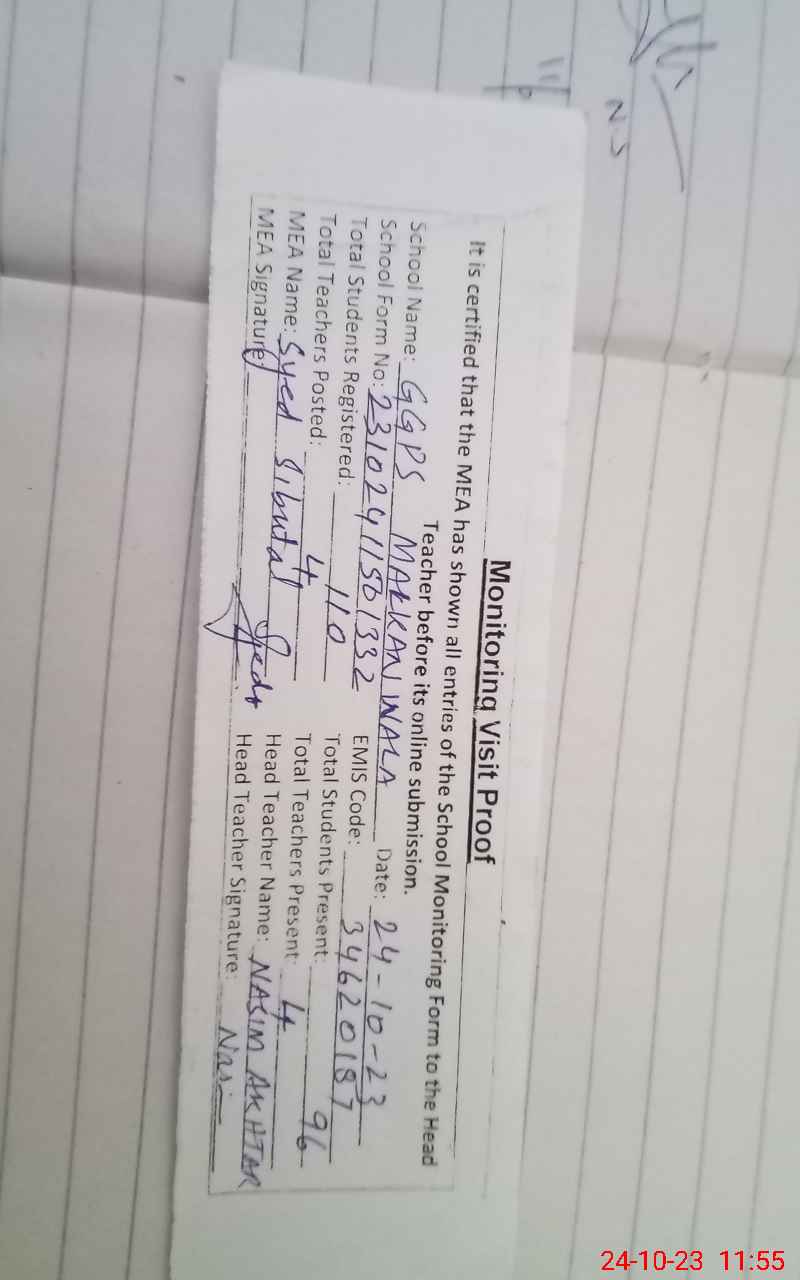 Monitoring Visit Proof
It is certified that the MEA has shown all entries of the School Monitoring Form to the Head
Teacher before its online submission.
School Name: GGPS MAKKAN WALA Date: 24-10-23
School Form No: EMIS Code: 34620187
Total Students Registered: 110 Total Students Present: 96
Total Teachers Posted: 4 Total Teachers Present: 4
MEA Name: Syed Head Teacher Name: NASIM AKHTAR
MEA Signature Head Teacher Signature:
24-10-23 11:55